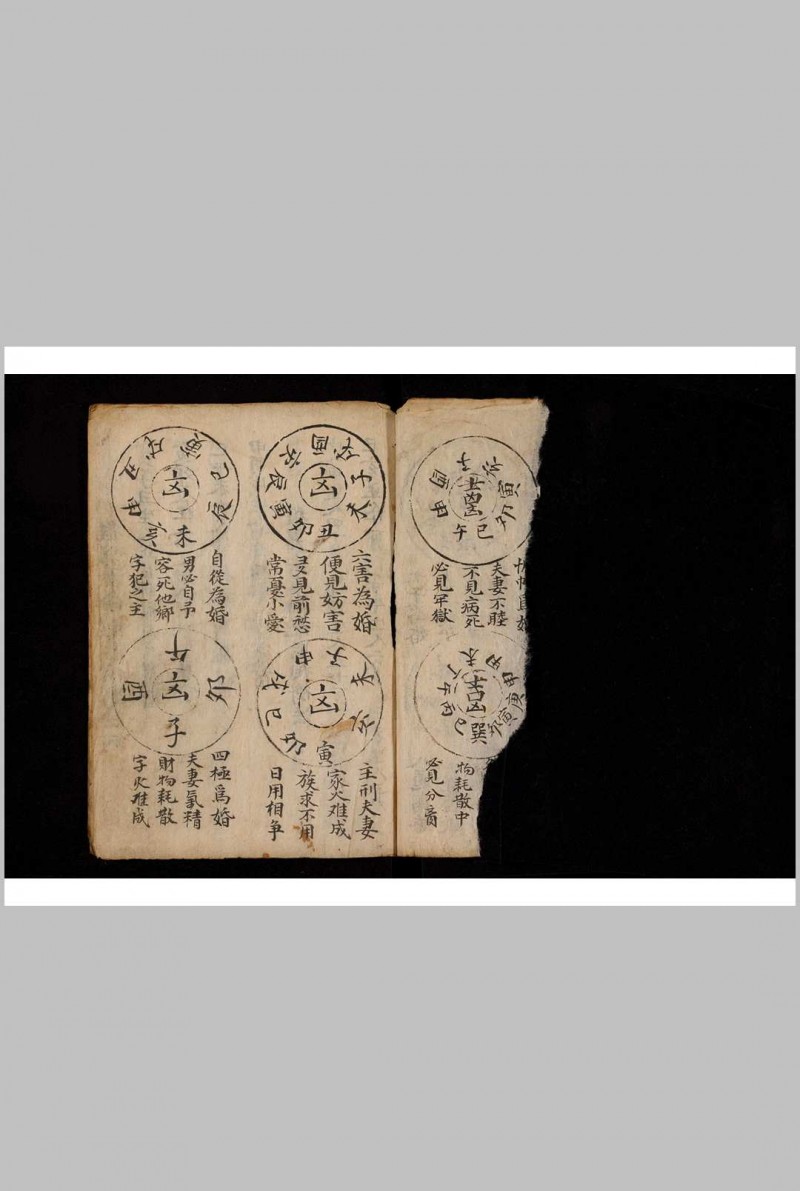 子
亥
寅
卯
巳
午
申
酉
夫妻不睦
不見病死
必見牢獄
未
午
酉
巳
巽
卯
寅
庚
甲
物耗散中
必見分
凶
酉
戌
子
未
丑
卯
寅
辰
亥
六害為婚
便見妨害
見前愁
常憂小愛
凶
申
子
未
亥
寅
巳
戌
主刑夫妻
家火难成
族求不用
日用相争
凶
寅
巳
辰
未
亥
申
丑
戌
自從為婚
男必自予
客死他鄉
字犯之主
凶
午
卯
子
酉
四極為婚
夫妻氣精
財物耗散
字火难成